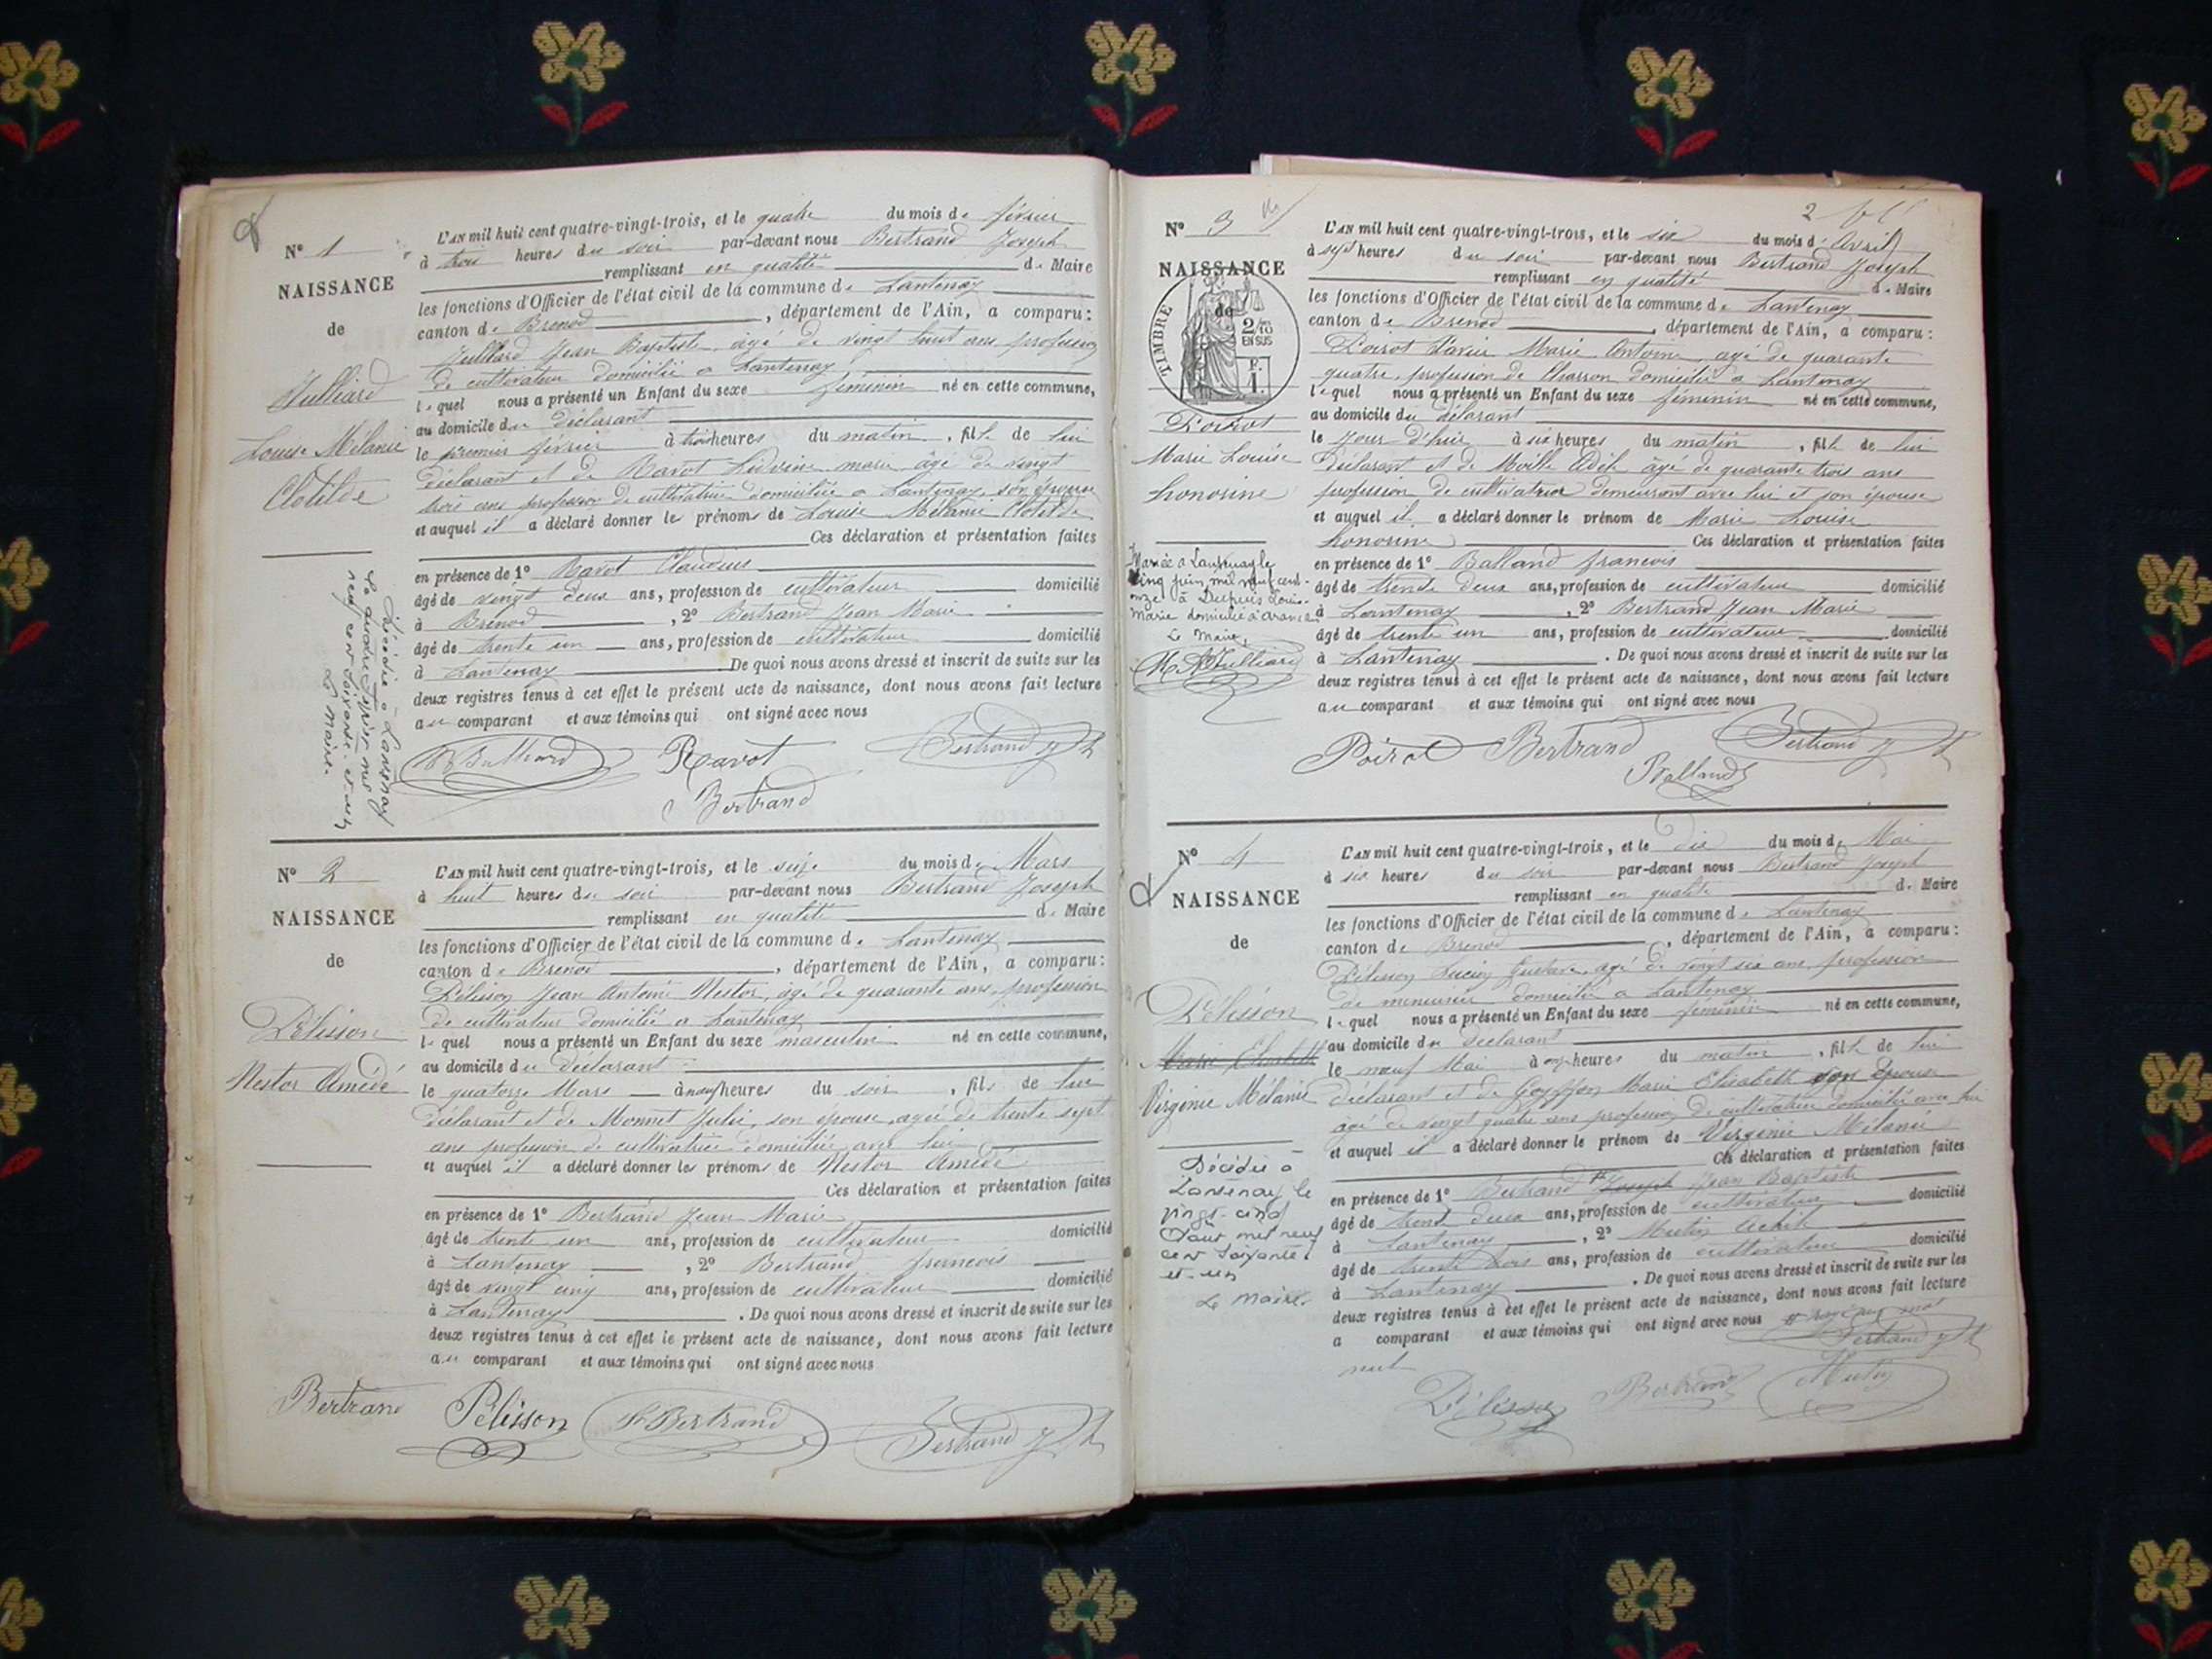 N° 1
NAISSANCE
de
Julliard
Louise Mélanie
Clotilde
Décédée à Lantenay
Le quatre Février mil
neuf cent soixante et un
Le Maire.
L'AN mil huit cent quatre-vingt-trois, et le quatre du mois de février
à trois heures du soir par-devant nous Bertrand Joseph
remplissant en qualité de Maire
les fonctions d'Officier de l'état civil de la commune de Lantenay
canton de Brenod, département de l'Ain, a comparu:
Julliard Jean Baptiste, âgé de vingt huit ans, profession
de cultivateur domicilié a Lantenay
lequel nous a présenté un Enfant du sexe féminin né en cette commune,
au domicile du déclarant
le premier février à trois heures du matin, fille de lui
déclarant et de Ravot Ludvine marie âgé de vingt
trois ans profession de cultivatrice domiciliée a Lantenay son épouse
et auquel il a déclaré donner les prénoms de Louise Mélanie Clotilde
Ces déclaration et présentation faites
en présence de 1° Ravot Claudius
âgé de vingt deux ans, profession de cultivateur domicilié
à Brenod, 2° Bertrand Jean Marie
âgé de trente un ans, profession de cultivateur domicilié
à Lantenay De quoi nous avons dressé et inscrit de suite sur les
deux registres tenus à cet effet le présent acte de naissance, dont nous avons fait lecture
au comparant et aux témoins qui ont signé avec nous
Ravot Bertrand Jh
Bertrand
N° 2
NAISSANCE
de
Pélisson
Nestor Amédé
L'AN mil huit cent quatre-vingt-trois, et le seize du mois de Mars
à huit heures du soir par-devant nous Bertrand Joseph
remplissant en qualité de Maire
les fonctions d'Officier de l'état civil de la commune de Lantenay
canton de Brenod, département de l'Ain, a comparu:
Pélisson Jean Antoine Nestor, âgé de quarante ans, profession
de cultivateur domicilié a Lantenay
lequel nous a présenté un Enfant du sexe masculin né en cette commune,
au domicile du déclarant
le quatorze Mars à neuf heures du soir, fils de lui
déclarant et de Monnet Julie, son épouse, agée de trente sept
ans profession de cultivatrice domiciliée avec lui
et auquel il a déclaré donner les prénoms de Nestor Amédé
Ces déclaration et présentation faites
en présence de 1° Bertrand Jean Marie
âgé de trente un ans, profession de cultivateur domicilié
à Lantenay, 2° Bertrand francois
âgé de vingt cinq ans, profession de cultivateur domicilié
à Lantenay. De quoi nous avons dressé et inscrit de suite sur les
deux registres tenus à cet effet le présent acte de naissance, dont nous avons fait lecture
au comparant et aux témoins qui ont signé avec nous
Bertrand Pelisson Bertrand Bertrand Jh
N° 3
NAISSANCE
de
TIMBRE
2/10
EN SUS
P.
1.
Poirot
Marie Louise
honorine
Mariée à Lantenay le
cinq juin, mil neuf cent
onze à Dupuis Louis
Marie domicilié à aranc
Le Maire,
Julliard
2
L'AN mil huit cent quatre-vingt-trois, et le six du mois d'Avril
à sept heures du soir par-devant nous Bertrand Joseph
remplissant en qualité de Maire
les fonctions d'Officier de l'état civil de la commune de Lantenay
canton de Brenod, département de l'Ain, a comparu:
Poirot Xavier Marie Antoine, agé de quarante
quatre, profession de Charron domicilié a Lantenay
lequel nous a présenté un Enfant du sexe féminin né en cette commune,
au domicile du déclarant
le jour d'hui à six heures du matin, fille de lui
déclarant et de Moille Adèle âgé de quarante trois ans
profession de cultivatrice demeurant avec lui et son épouse
et auquel il a déclaré donner le prénom de Marie Louise
honorine Ces déclaration et présentation faites
en présence de 1° Balland francois
âgé de trente deux ans, profession de cultivateur domicilié
à Lantenay, 2° Bertrand Jean Marie
âgé de trente un ans, profession de cultivateur domicilié
à Lantenay. De quoi nous avons dressé et inscrit de suite sur les
deux registres tenus à cet effet le présent acte de naissance, dont nous avons fait lecture
au comparant et aux témoins qui ont signé avec nous
Poirot Bertrand Bertrand Jh
Balland
N° 4
NAISSANCE
de
Pélisson
Marie Elisabeth
Virginie Mélanie
Décédée à
Lantenay le
vingt-cinq
Août mil neuf
cent soixante
et un
Le Maire.
L'AN mil huit cent quatre-vingt-trois, et le dix du mois de Mai
à six heures du soir par-devant nous Bertrand Joseph
remplissant en qualité de Maire
les fonctions d'Officier de l'état civil de la commune de Lantenay
canton de Brenod, département de l'Ain, a comparu:
Pélisson Lucien Gustave, agé de vingt six ans, profession
de menuisier domicilié a Lantenay
lequel nous a présenté un Enfant du sexe féminin né en cette commune,
au domicile du déclarant
le neuf Mai à onze heures du matin, fille de lui
déclarant et de Goyffon Marie Elisabeth son épouse
agé de vingt quatre ans profession de cultivatrice domiciliée avec lui
et auquel il a déclaré donner le prénom de Virginie Mélanie
Ces déclaration et présentation faites
en présence de 1° Bertrand Joseph Jean Baptiste
âgé de trente deux ans, profession de cultivateur domicilié
à Lantenay, 2° Mutin Achile
âgé de trente trois ans, profession de cultivateur domicilié
à Lantenay. De quoi nous avons dressé et inscrit de suite sur les
deux registres tenus à cet effet le présent acte de naissance, dont nous avons fait lecture
a comparant et aux témoins qui ont signé avec nous rayé un mot
nul
Bertrand Jh
Pélisson Bertrand Mutin